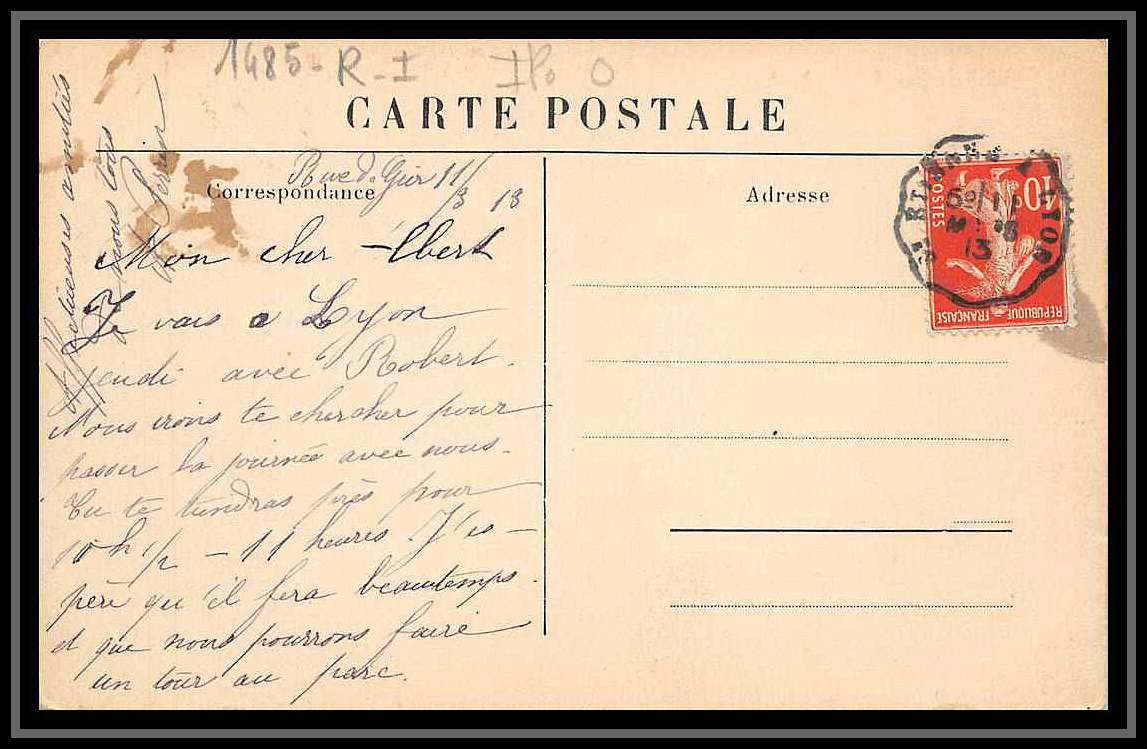 1485 - R - I
CARTE POSTALE
Correspondance
Adresse
R. de Gier 11/3 13
Mon cher Albert
Je vais a Lyon
jeudi avec Robert.
Nous irons te chercher pour
passer la journée avec nous.
Tu te tiendras près pour
10 h 1/2 - 11 heures J'es-
père qu'il fera beau temps.
et que nous pourrons faire
un tour au parc.
Affectueuses amitiés
nous tous
Perrin
ST ETIENNE A LYON
13
10
POSTES
REPUBLIQUE FRANCAISE